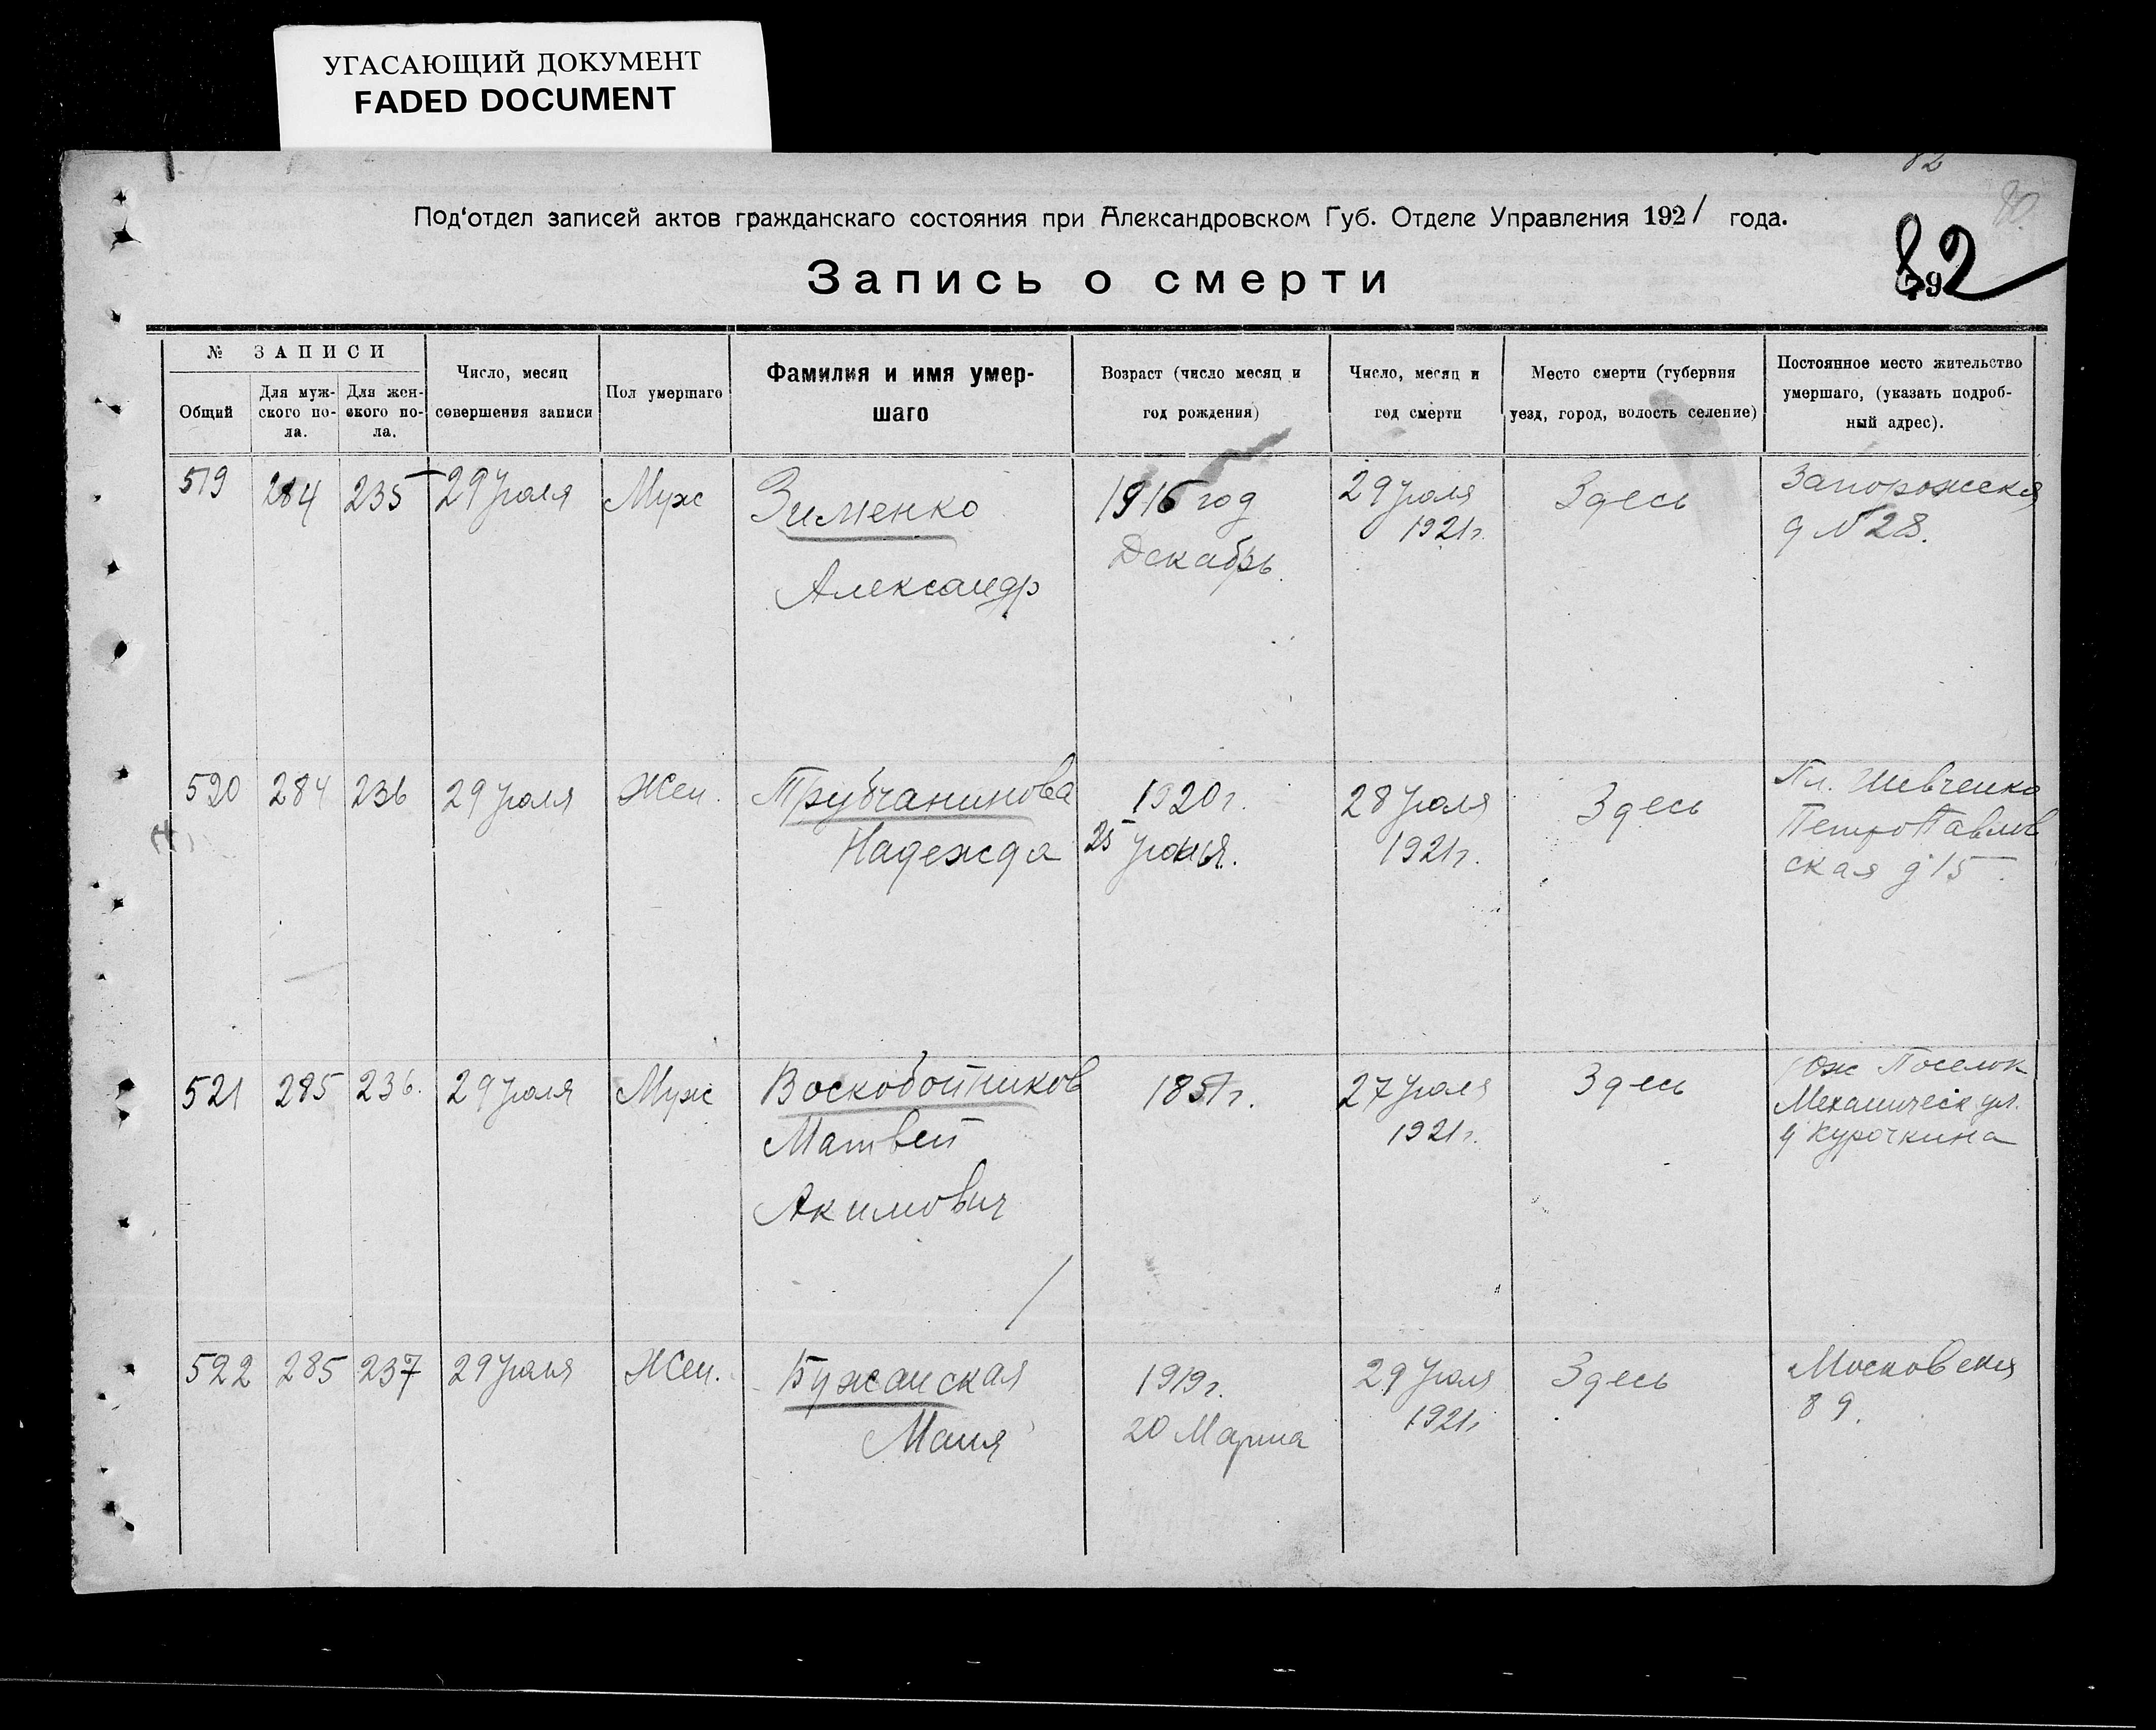 УГАСАЮЩИЙ ДОКУМЕНТ
FADED DOCUMENT
82
80
Под'отдел записей актов гражданскаго состояния при Александровском Губ. Отделе Управления 1921 года.
Запись о смерти
82
№ ЗАПИСИ
Общий
Для муж-
ского по-
ла.
Для жен-
ского по-
ла.
Число, месяц
совершения записи
Пол умершаго
Фамилия и имя умер-
шаго
Возраст (число месяц и
год рождения)
Число, месяц и
год смерти
Место смерти (губерния
уезд, город, волость селение)
Постоянное место жительство
умершаго, (указать подроб-
ный адрес).
519 284 235 29 Июля Муж Зименко 1916 год 29 Июля Здесь Запорожская
Александр Декабрь. 1921г. д N 28.
520 284 236 29 Июля Жен. Трубчанинова 1920г. 28 Июля Здесь Пл. Шевченко
Надежда 25 Июня. 1921г. ПетроПавлов
ская д 15
521 285 236. 29 Июля Муж Воскобойников 1851г. 27 Июля Здесь Юж Поселок
Матвей 1921г. Механическ ул.
Акимович д Курочкина
522 285 237 29 Июля Жен. Бужанская 1919г. 29 Июля Здесь Московская
Маня 20 Марта 1921г 89.